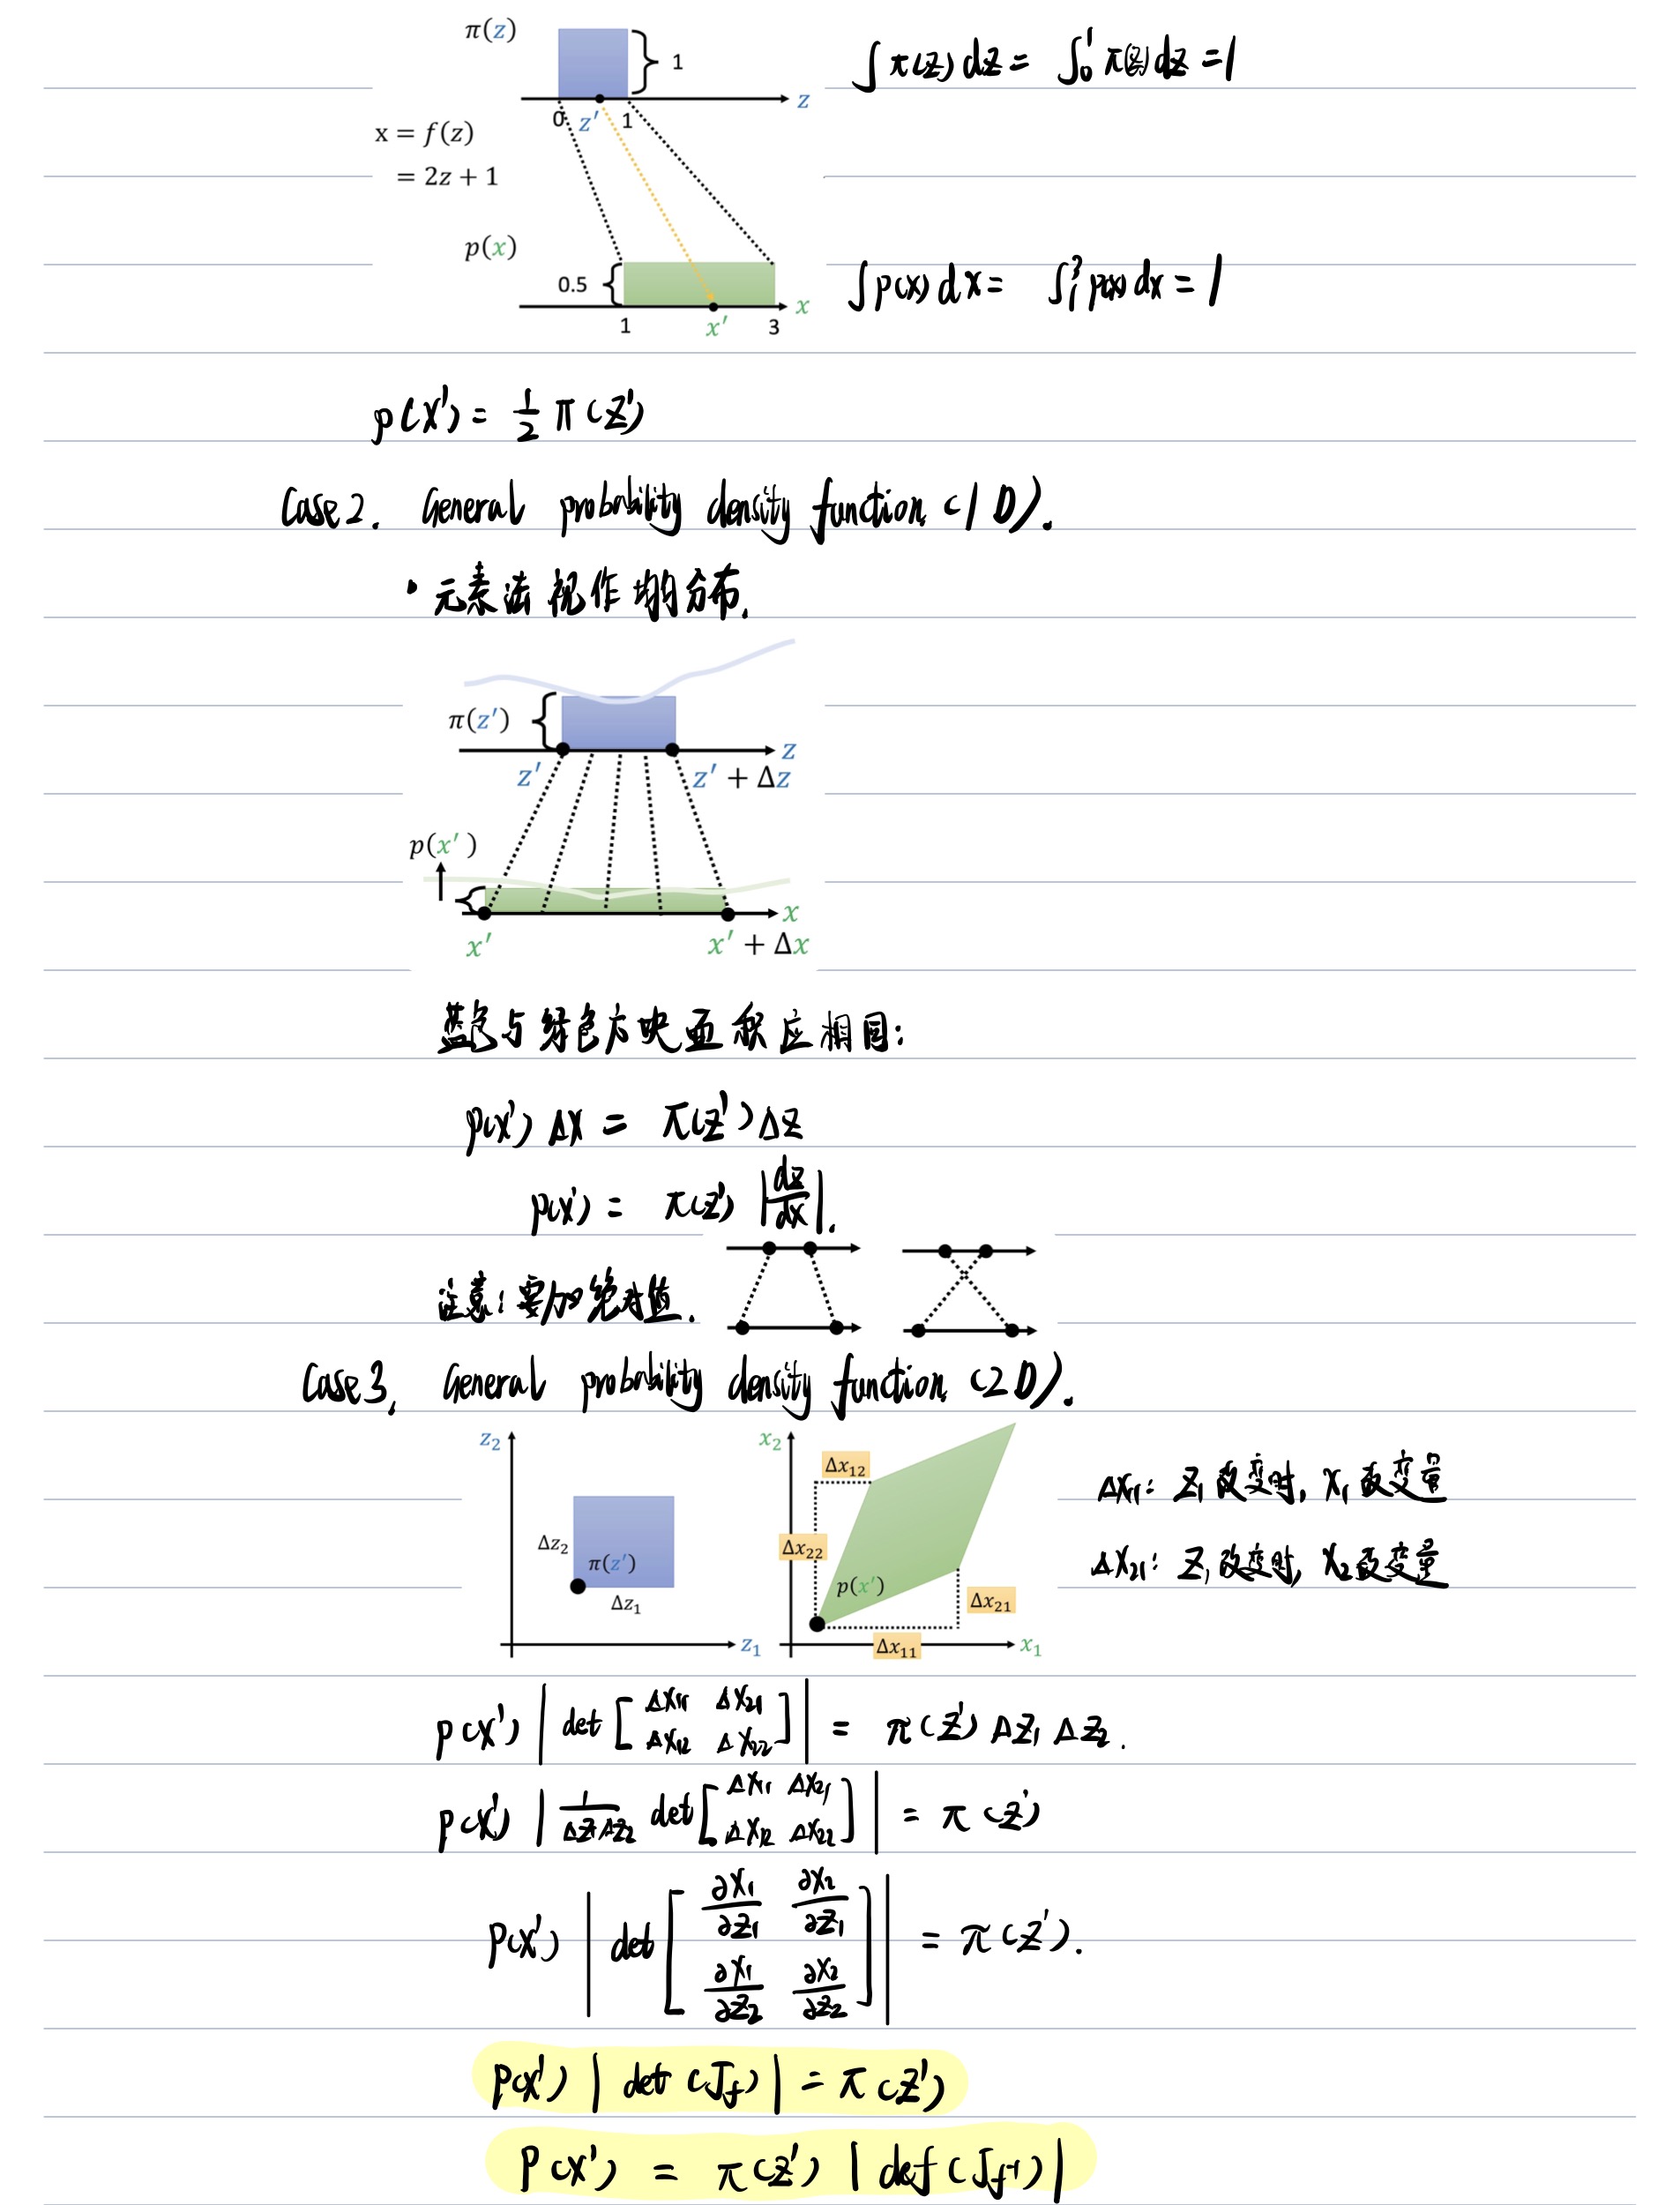 π(z)
1
∫π(z)dz = ∫₀¹ π(z)dz = 1
0 z′ 1 z
x = f(z)
= 2z + 1
p(x)
0.5
∫p(x)dx = ∫₁³ p(x)dx = 1
1 x′ 3 x
p(x′) = 1/2 π(z′)
Case 2. General probability density function (1D).
· 元素法 视作均匀分布.
π(z′)
z
z′ z′ + Δz
p(x′)
x
x′ x′ + Δx
蓝色与绿色方块面积应相同:
p(x′) Δx = π(z′) Δz
p(x′) = π(z′) |dz/dx|.
注意: 要加绝对值.
Case 3. General probability density function (2D).
z₂ x₂
Δx₁₂
Δx₁₁: z₁改变时, x₁改变量
Δz₂ Δx₂₂
Δx₂₁: z₁改变时, x₂改变量
π(z′) p(x′) Δx₂₁
Δz₁
z₁ Δx₁₁ x₁
p(x′) |det [Δx₁₁ Δx₂₁
Δx₁₂ Δx₂₂]| = π(z′) Δz₁ Δz₂.
p(x′) |1/(Δz₁Δz₂) det [Δx₁₁ Δx₂₁
Δx₁₂ Δx₂₂]| = π(z′)
p(x′) |det [∂x₁/∂z₁ ∂x₂/∂z₁
∂x₁/∂z₂ ∂x₂/∂z₂]| = π(z′).
p(x′) |det(J_f)| = π(z′)
p(x′) = π(z′) |det(J_f⁻¹)|